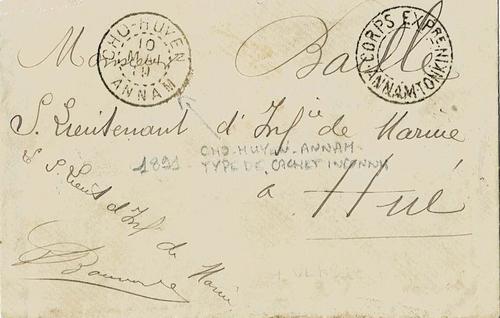 CHO-HUYEN
10
ANNAM
CORPS EXPRE.NRE
ANNAM-TONKIN
S. Lieutenant d' Infie de Marine
à Hué
CHO-HUYEN-ANNAM
1891 - TYPE DE CACHET INCONNU
S. Lieut d'Inf de Marine